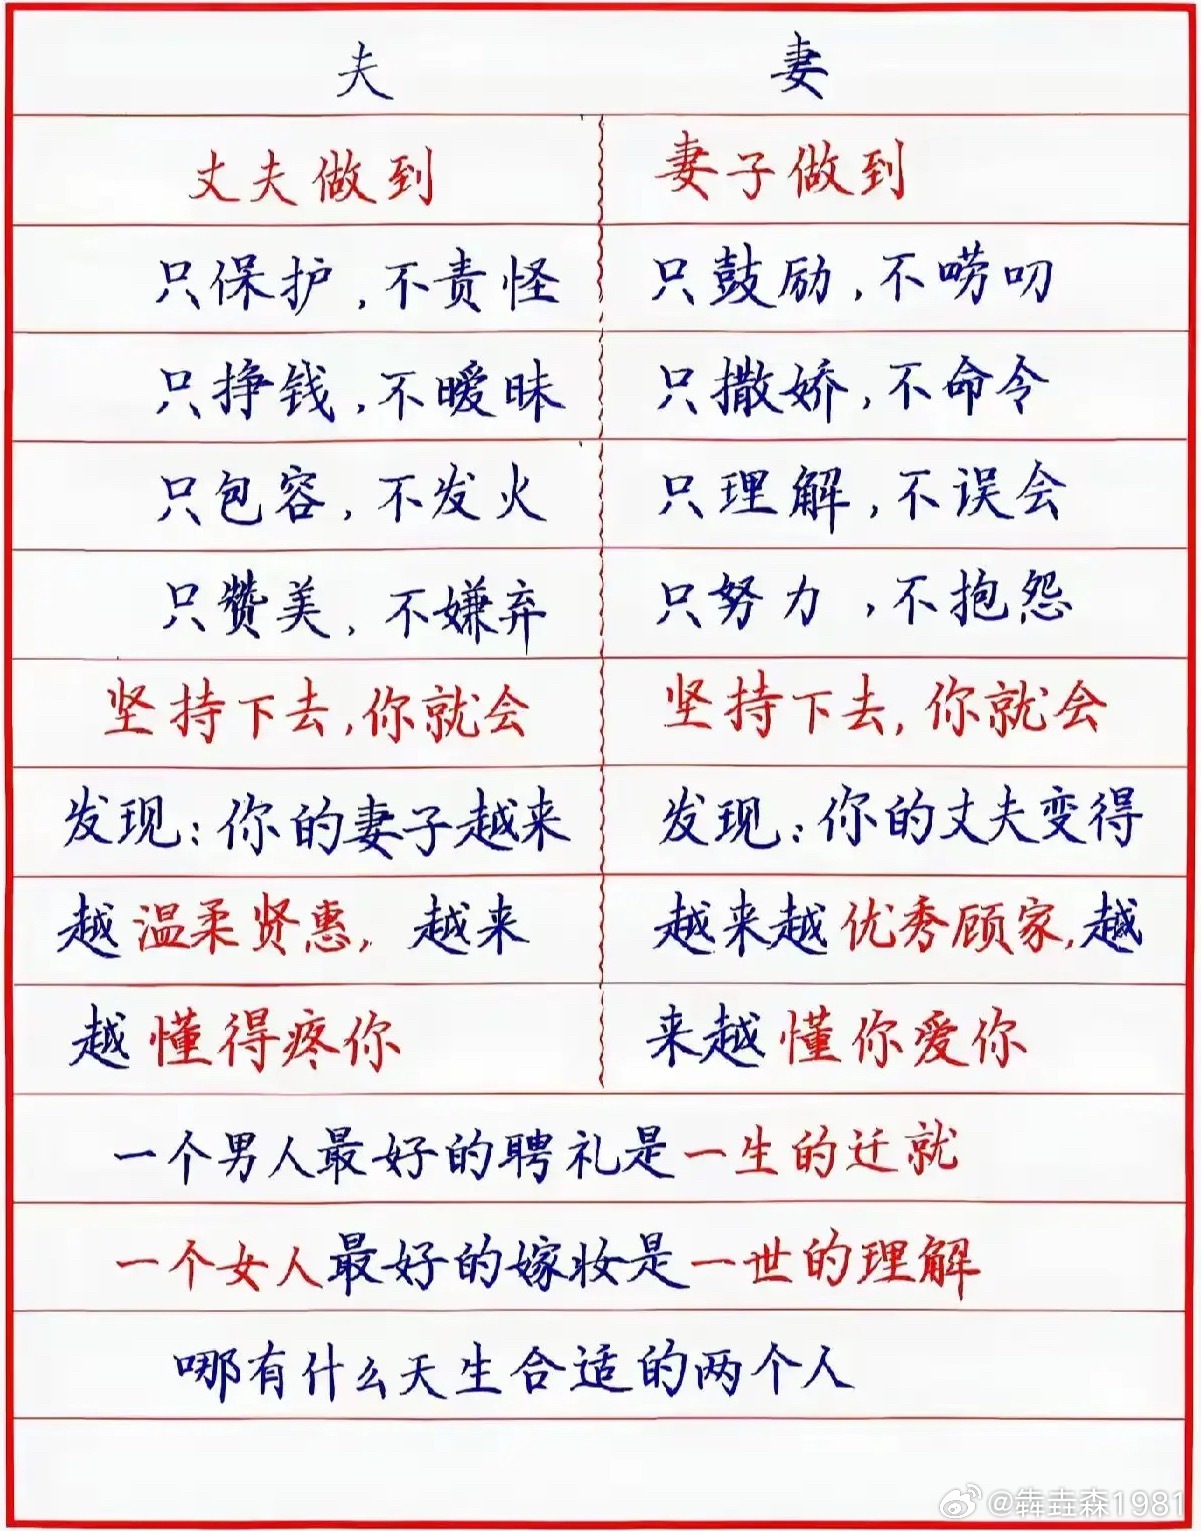 夫 妻
丈夫做到 妻子做到
只保护,不责怪 只鼓励,不唠叨
只挣钱,不暧昧 只撒娇,不命令
只包容,不发火 只理解,不误会
只赞美,不嫌弃 只努力,不抱怨
坚持下去,你就会 坚持下去,你就会
发现:你的妻子越来 发现:你的丈夫变得
越温柔贤惠,越来 越来越优秀顾家,越
越懂得疼你 来越懂你爱你
一个男人最好的聘礼是一生的迁就
一个女人最好的嫁妆是一世的理解
哪有什么天生合适的两个人
@犇垚森1981